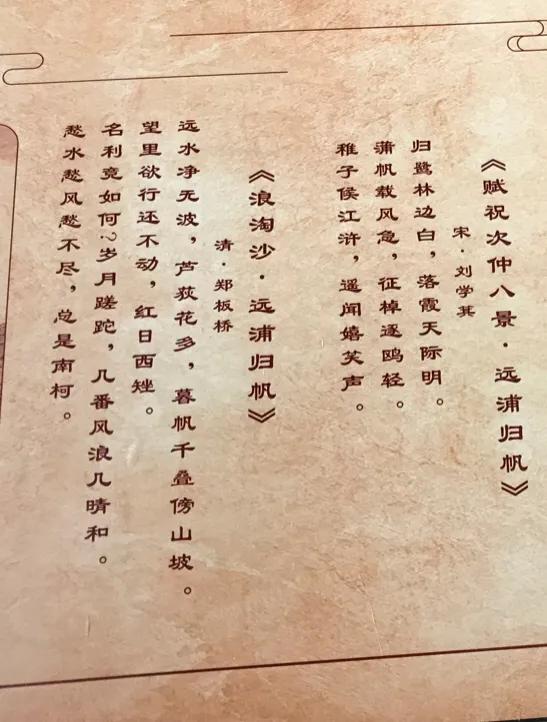 《赋祝次仲八景·远浦归帆》
宋·刘学箕
归鹭林边白，落霞天际明。
蒲帆载风急，征棹逐鸥轻。
稚子候江浒，遥闻嬉笑声。
《浪淘沙·远浦归帆》
清·郑板桥
远水净无波，芦荻花多，暮帆千叠傍山坡。
望里欲行还不动，红日西矬。
名利竟如何？岁月蹉跎，几番风浪几晴和。
愁水愁风愁不尽，总是南柯。